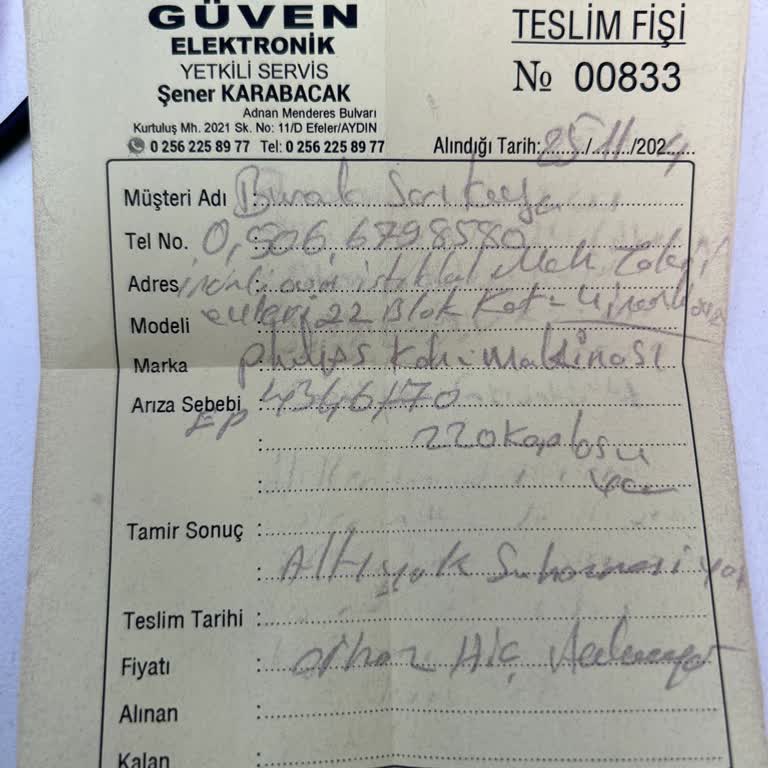 GÜVEN
ELEKTRONİK
YETKİLİ SERVİS
Şener KARABACAK
Adnan Menderes Bulvarı
Kurtuluş Mh. 2021 Sk. No: 11/D Efeler/AYDIN
0 256 225 89 77 Tel: 0 256 225 89 77
TESLİM FİŞİ
№ 00833
Alındığı Tarih: 25/11/2024
Müşteri Adı : Burak Sarıkaya
Tel No. 0,506,6798580
Adres istiklal Mah
Modeli evleri 22 Blok Kat-4
Marka philips Kah-makinası
Arıza Sebebi : 4346/70
EP
220 Kaplosu
Yok
Tamir Sonuç :
Altı yok Su haznesi yok
Teslim Tarihi :
Fiyatı : cihaz Hiç
Alınan :
Kalan :